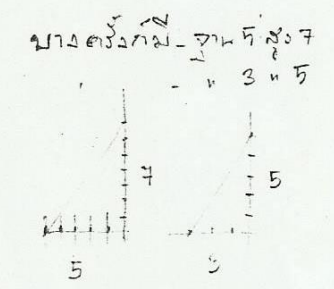 บางครั้งก็มี - ฐาน 5 สูง 7
- " 3 " 5
7
5
5
3